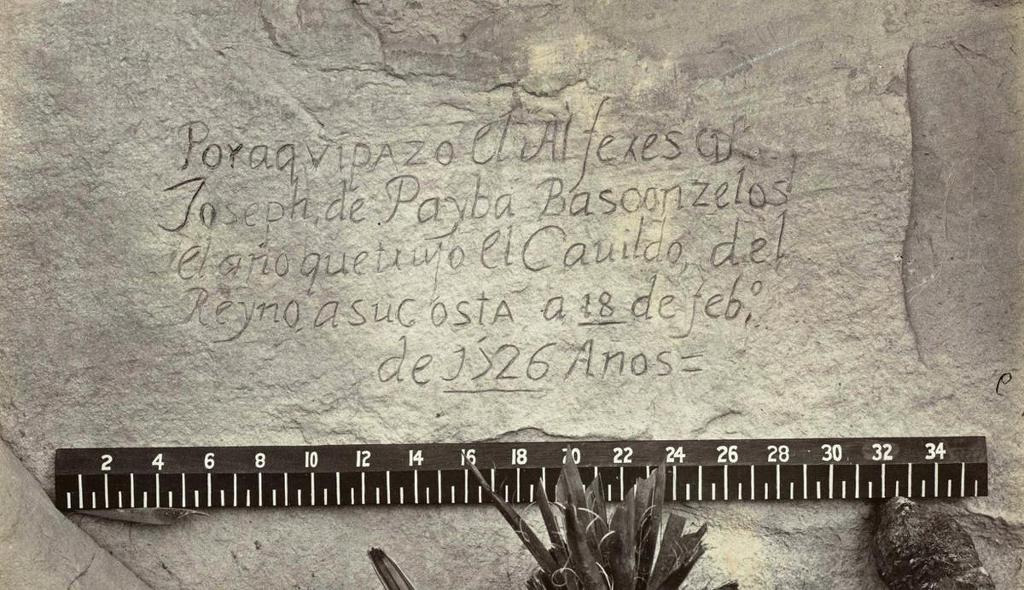 Por aqvi pazo el Alferes Dn
Joseph, de Payba Basconzelos
el año que trujo el Cauildo, del
Reyno, a su costa a 18 de feb.º
de 1526 Anos=
e
2 4 6 8 10 12 14 16 18 20 22 24 26 28 30 32 34